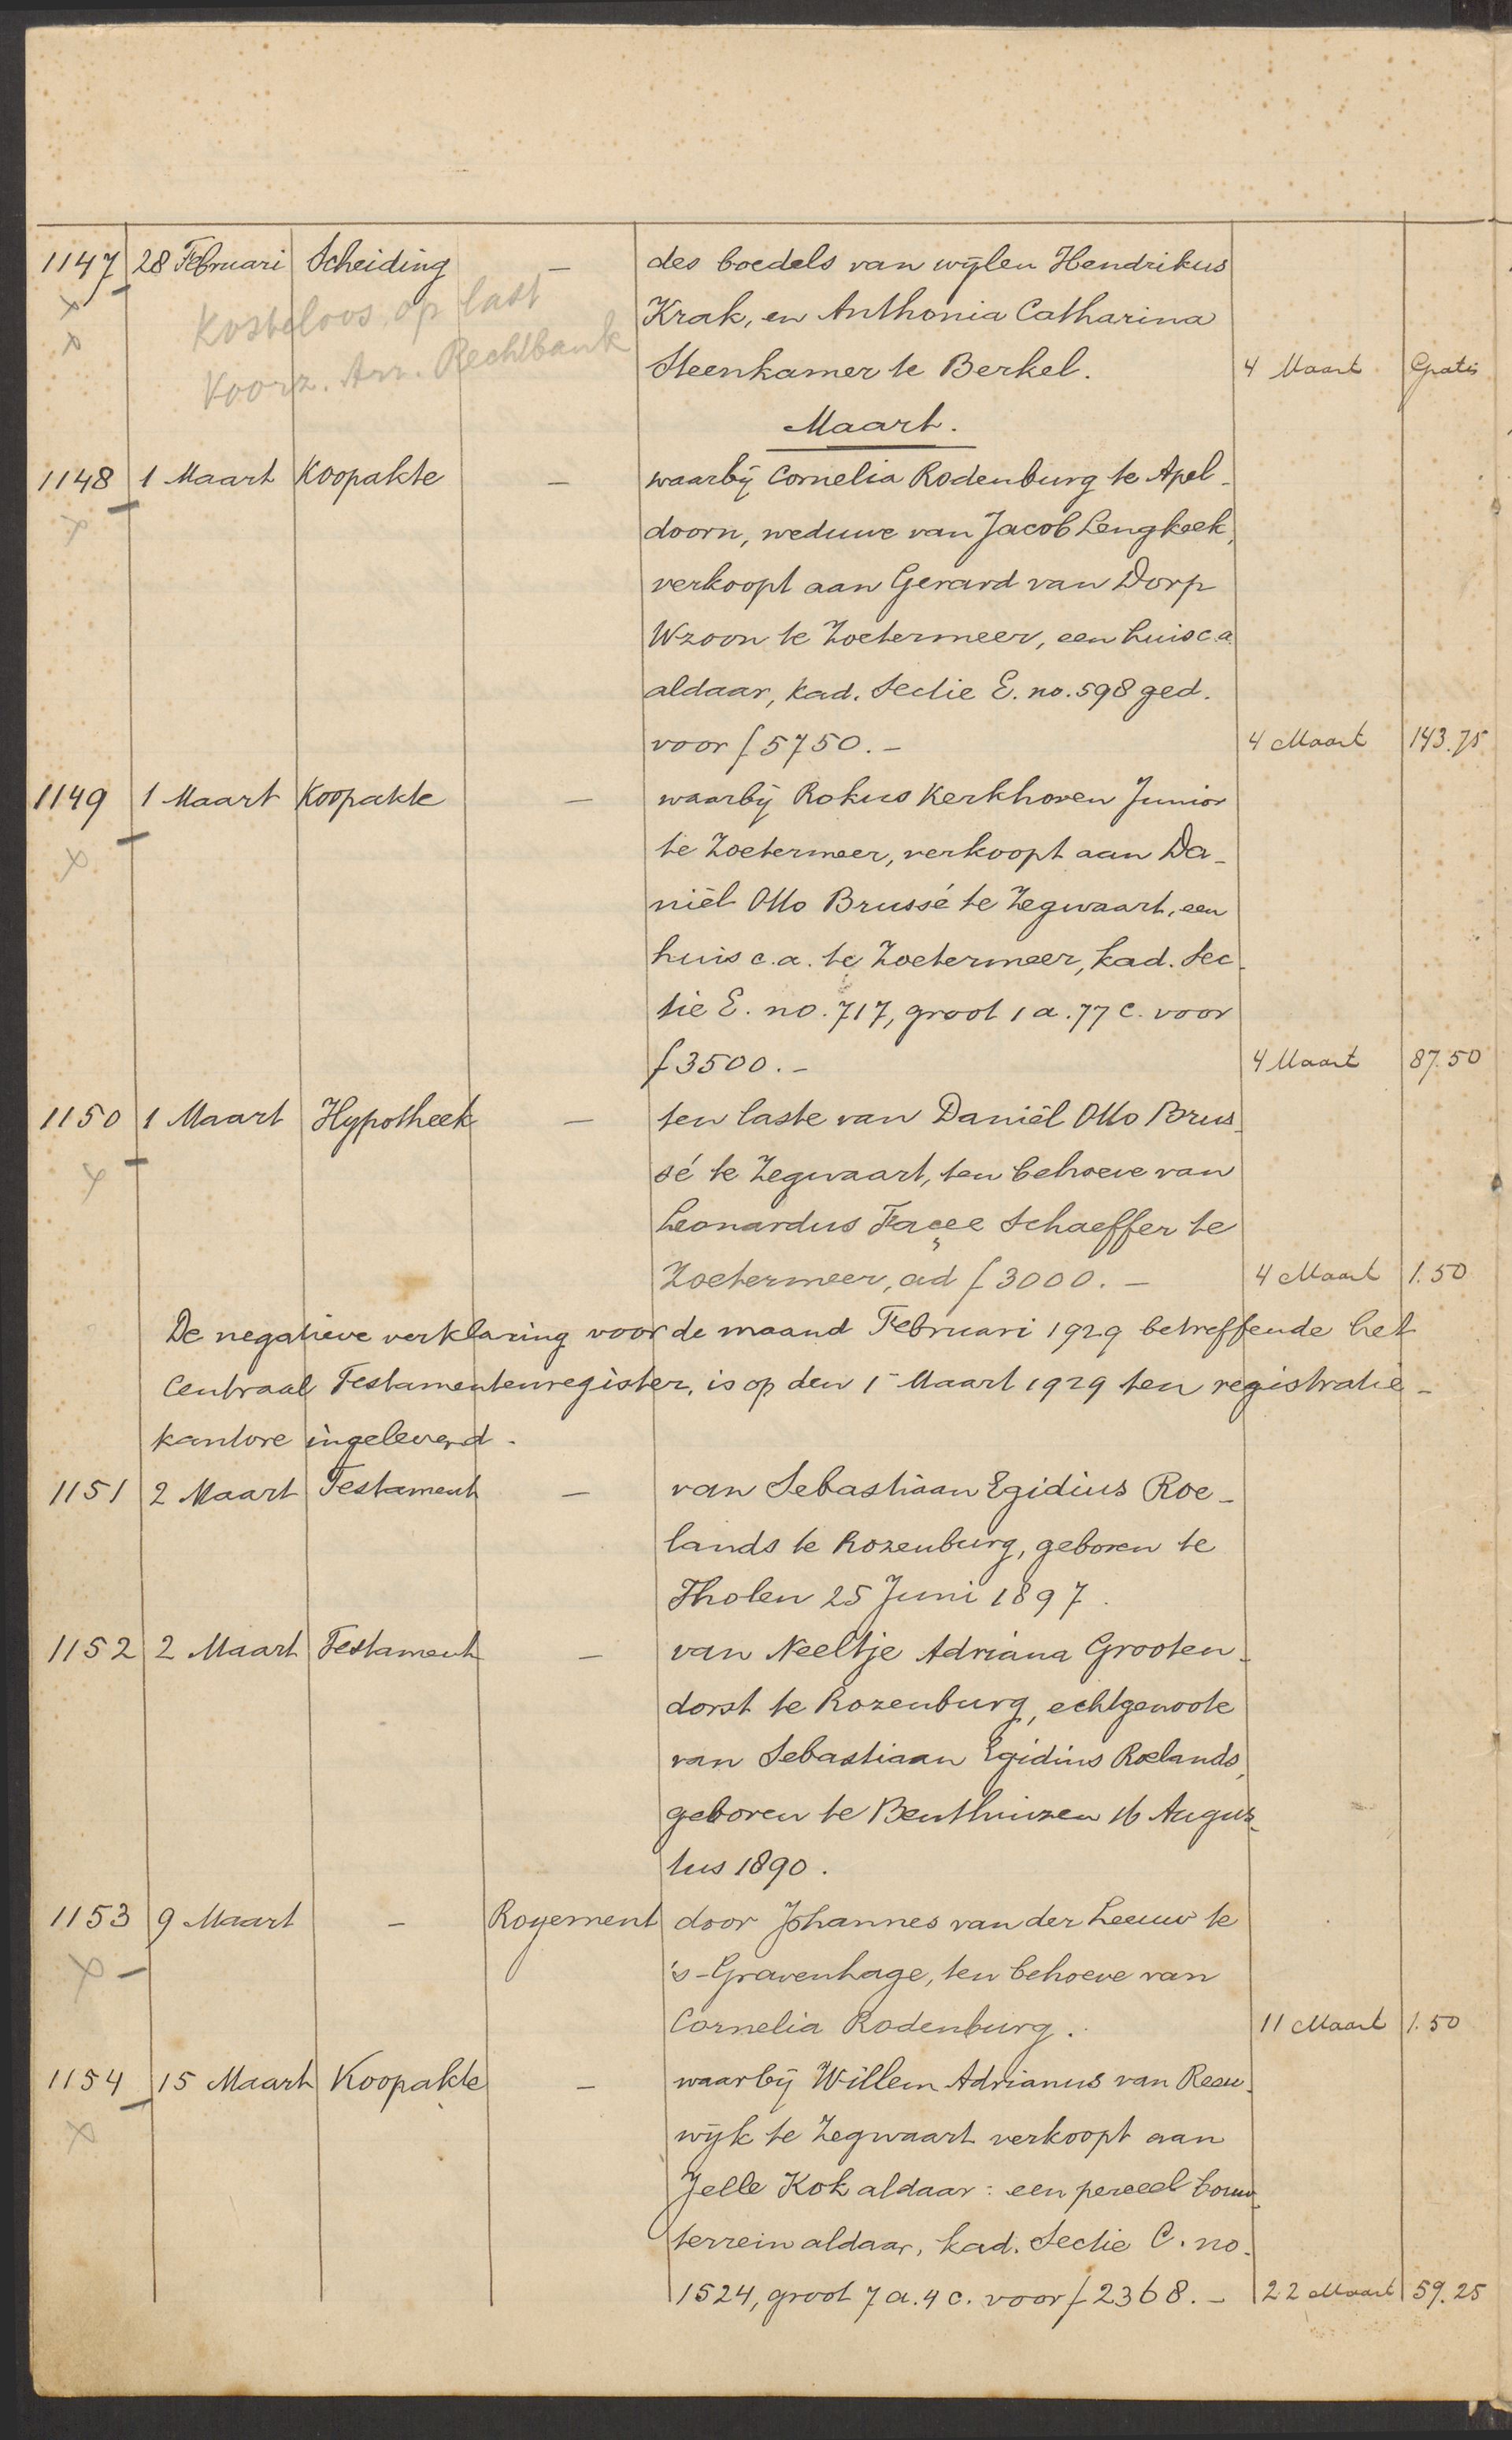 1147 28 Februari Scheiding – des boedels van wijlen Hendrikus
Kosteloos op last Krak, en Anthonia Catharina
Voorz. Arr. Rechtbank Steenkamer te Berkel. 4 Maart Gratis
Maart.
1148 1 Maart Koopakte – waarbij Cornelia Rodenburg te Apel-
doorn, weduwe van Jacob Lengkeek,
verkoopt aan Gerard van Dorp
Wzoon te Zoetermeer, een huis c.a.
aldaar, kad. Sectie E. no. 598 ged.
voor f 5750.– 4 Maart 143.75
1149 1 Maart Koopakte – waarbij Rokus Kerkhoven Junior
te Zoetermeer, verkoopt aan Da-
niël Otto Brussé te Zegwaart, een
huis c.a. te Zoetermeer, kad. Sec-
tie E. no. 717, groot 1 a. 77 c. voor
f 3500.– 4 Maart 87.50
1150 1 Maart Hypotheek – ten laste van Daniël Otto Brus-
sé te Zegwaart, ten behoeve van
Leonardus Façee Schaeffer te
Zoetermeer, ad f 3000.– 4 Maart 1.50
De negatieve verklaring voor de maand Februari 1929 betreffende het
Centraal Testamentenregister, is op den 1 Maart 1929 ten registratie-
kantore ingeleverd.
1151 2 Maart Testament – van Sebastiaan Egidius Roe-
lands te Rozenburg, geboren te
Tholen 25 Juni 1897.
1152 2 Maart Testament – van Neeltje Adriana Grooten-
dorst te Rozenburg, echtgenoote
van Sebastiaan Egidius Roelands,
geboren te Benthuizen 16 Augus-
tus 1890.
1153 9 Maart – Royement door Johannes van der Leeuw te
's-Gravenhage, ten behoeve van
Cornelia Rodenburg. 11 Maart 1.50
1154 15 Maart Koopakte – waarbij Willem Adrianus van Reeu-
wijk te Zegwaart verkoopt aan
Jelle Kok aldaar: een perceel bouw-
terrein aldaar, kad. Sectie C. no.
1524, groot 7 a. 4 c. voor f 2368.– 22 Maart 59.25